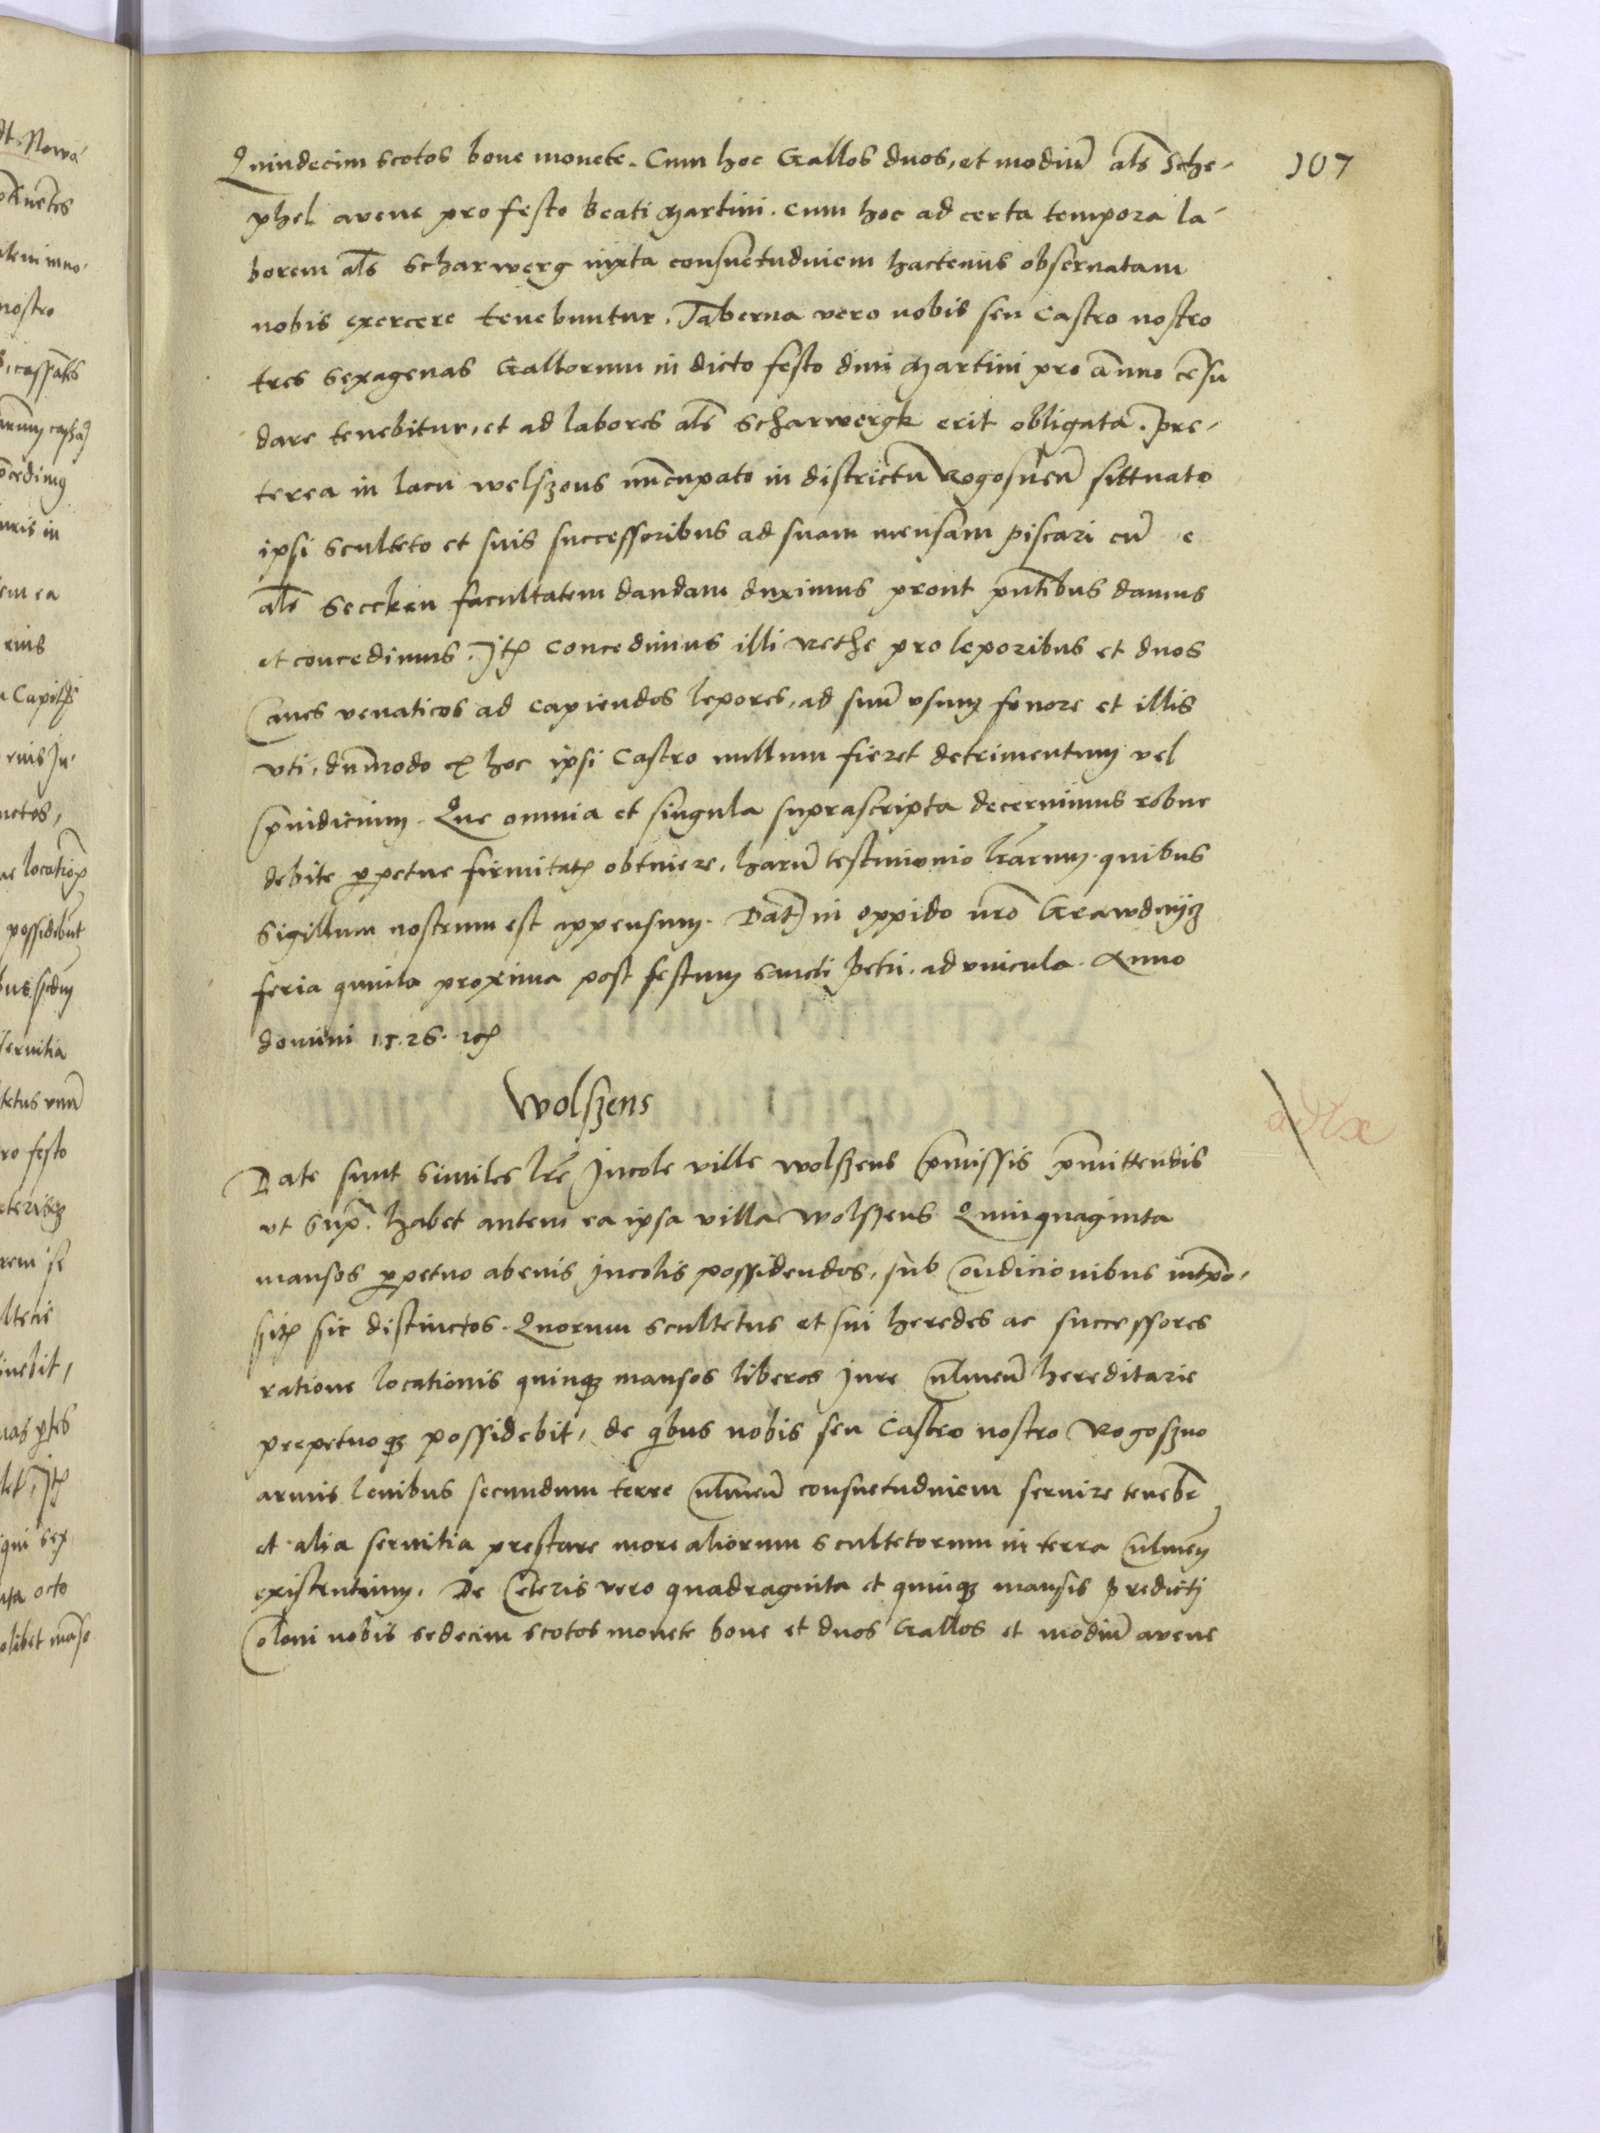 107
Quindecim scotos bone monete. Cum hoc Gallos duos, et modiū al̄s Sche-
phel avene pro festo Beati Martini. cum hoc ad certa tempora la-
borem al̄s Scharwerg iuxta consuetudinem hactenus observatam
nobis exercere tenebuntur. Taberna vero nobis seu Castro nostro
tres sexagenas Gallorum in dicto festo divi Martini pro anno cēsu
dare tenebitur, et ad labores al̄s Scharwergk erit obligata. Pre-
terea in lacu welszons nūcupato in districtu Rogosnen̄ sittuato
ipsi sculteto et suis successoribus ad suam mensam piscari cū e
al̄s Seccken facultatem dandam duximus prout pn̄tibus damus
et concedimus. Itē concedimus illi rethe pro leporibus et duos
Canes venaticos ad capiendos lepores, ad suū usum fonore et illis
uti, dūmodo ex hoc ipsi Castro nullum fieret detrimentum vel
p̄iudicium. Que omnia et singula suprascripta decernimus robur
debite perpetue firmitatis obtinere, harū testimonio lr̄arum quibus
Sigillum nostrum est appensum. Dat in oppido nr̄o Grawdenijcz
feria quinta proxima post festum sancti Petri. ad vincula. Anno
domini 1526 etc
Wolszens
Date sunt similes lr̄e Incole ville wolszens p̄missis p̄mittendis
ut sup̄. habet autem ea ipsa villa Wolszens Quinquaginta
mansos perpetuo ab eius Incolis possidendos, sub Condicionibus
sic distinctos. Quorum scultetus et sui heredes ac successores
ratione locationis quinqz mansos liberos Jure Culmeñ hereditarie
prepetuoqz possidebit, de qibus nobis seu Castro nostro Rogoszno
armis levibus secundum terre Culmeñ consuetudinem servire teneb
et alia servitia prestare more aliorum scultetorum in terra Culmeñ
existentium. De Ceteris vero quadraginta et quinqz mansis predicti
Coloni nobis sedecim scotos monete bone et duos Gallos et modiū avene